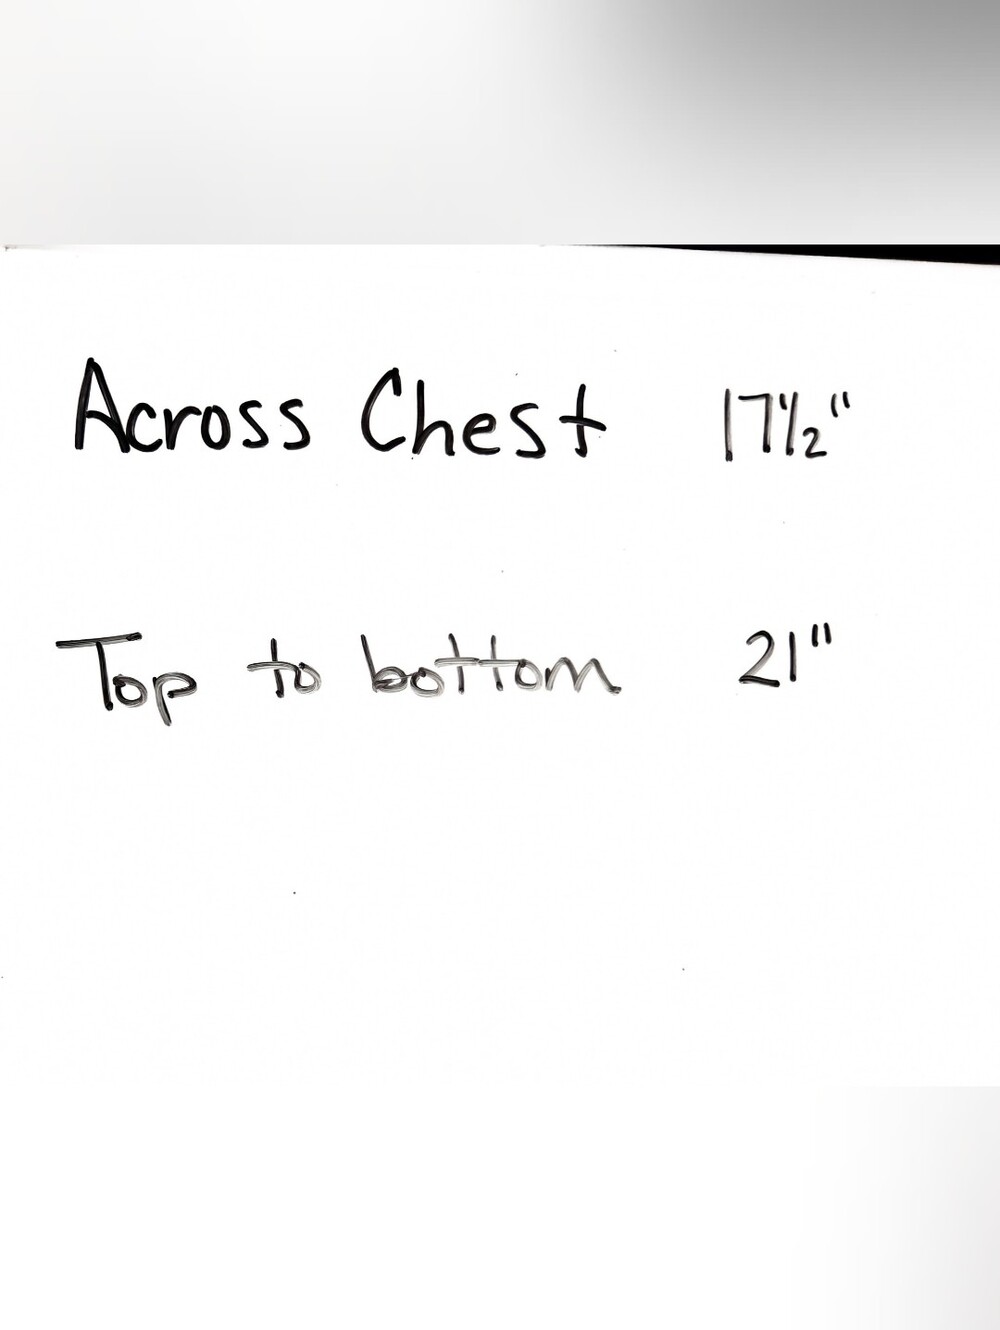 Across Chest 17 1/2"
Top to bottom 21"